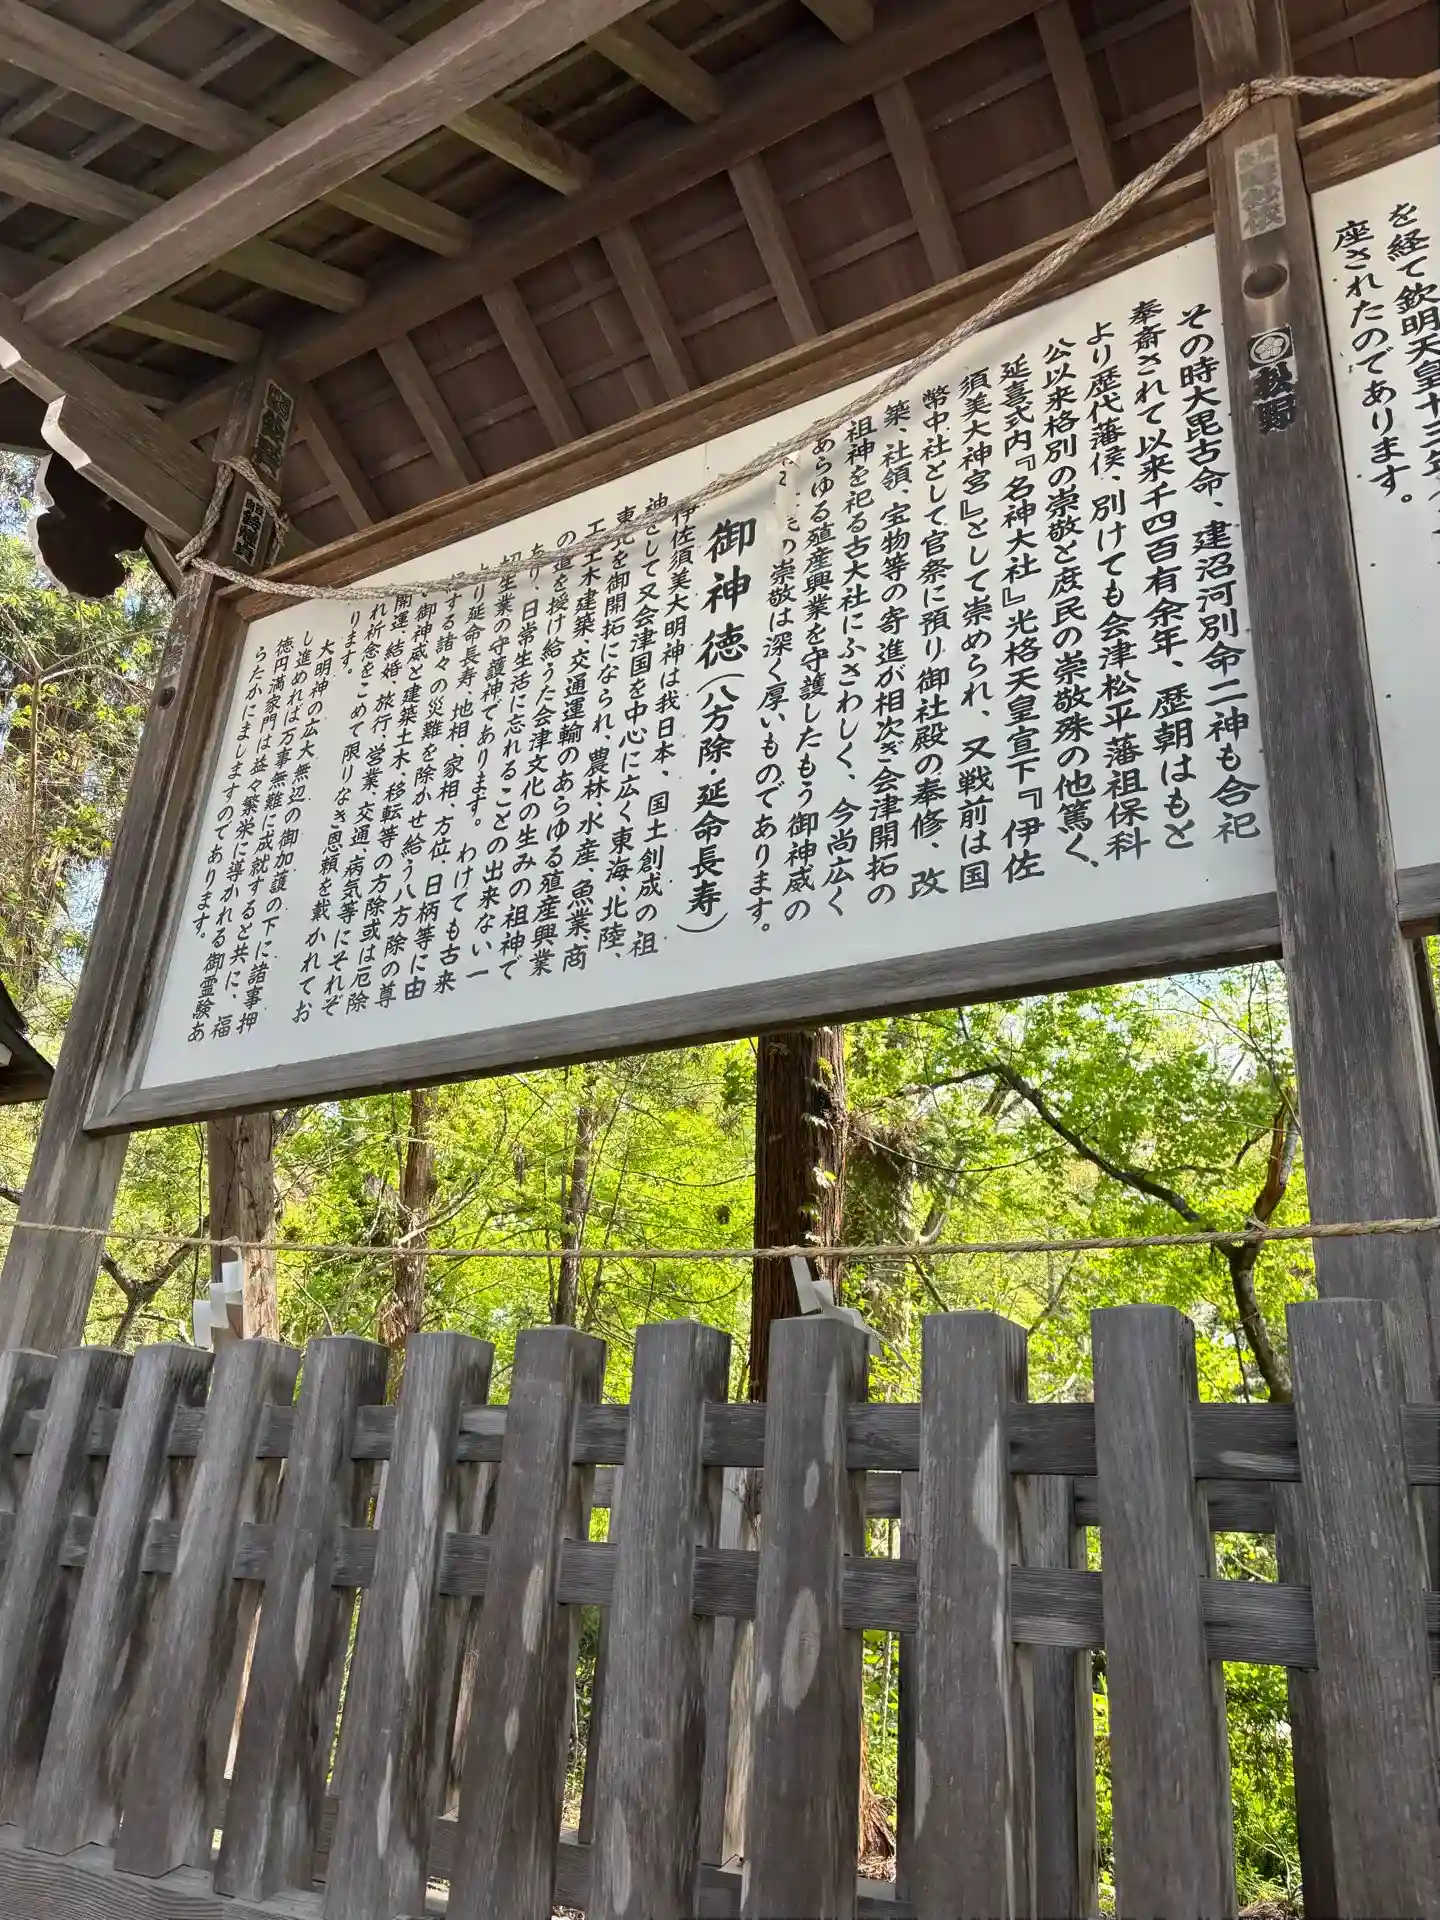 を経て欽明天皇十三年
座されたのであります。
その時大毘古命、建沼河別命二神も合祀
奉斎されて以来千四百有余年、歴朝はもと
より歴代藩侯、別けても会津松平藩祖保科
公以来格別の崇敬と庶民の崇敬殊の他篤く、
延喜式内『名神大社』光格天皇宣下『伊佐
須美大神宮』として崇められ、又戦前は国
幣中社として官祭に預り御社殿の奉修、改
築、社領、宝物等の寄進が相次ぎ会津開拓の
祖神を祀る古大社にふさわしく、今尚広く
あらゆる殖産興業を守護したもう御神威の
の崇敬は深く厚いものであります。
御神徳(八方除・延命長寿)
伊佐須美大明神は我日本、国土創成の祖
神として又会津国を中心に広く東海、北陸、
東北を御開拓になられ、農林、水産、魚業、商
工、土木建築、交通運輸のあらゆる殖産興業
の道を授け給うた会津文化の生みの祖神で
あり、日常生活に忘れることの出来ない一
切生業の守護神であります。わけても古来
より延命長寿、地相、家相、方位、日柄等に由
する諸々の災難を除かせ給う八方除の尊
い御神威と建築土木、移転等の方除或は厄除
開運、結婚、旅行、営業、交通、病気等にそれぞ
れ祈念をこめて限りなき恩頼を戴かれてお
ります。
大明神の広大無辺の御加護の下に諸事押
し進めれば万事無難に成就すると共に、福
徳円満家門は益々繁栄に導かれる御霊験あ
らたかにましますのであります。
松野